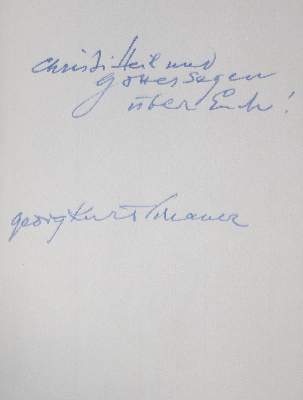 Christi Heil und
Gottes Segen
über Euch!
Georg Kurt Schauer